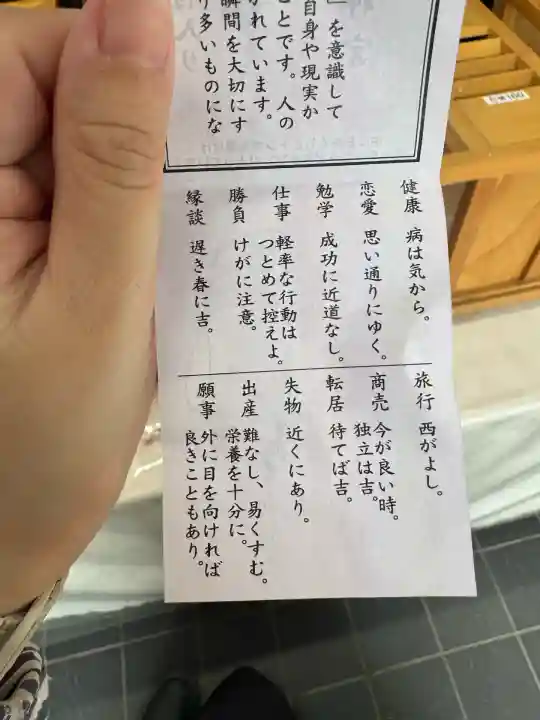 」を意識して
自身や現実か
ことです。人の
かれています。
瞬間を大切にす
り多いものにな
健康 病は気から。
恋愛 思い通りにゆく。
勉学 成功に近道なし。
仕事 軽率な行動は
つとめて控えよ。
勝負 けがに注意。
縁談 遅き春に吉。
旅行 西がよし。
商売 今が良い時。
独立は吉。
転居 待てば吉。
失物 近くにあり。
出産 難なし、易くすむ。
栄養を十分に。
願事 外に目を向ければ
良きこともあり。